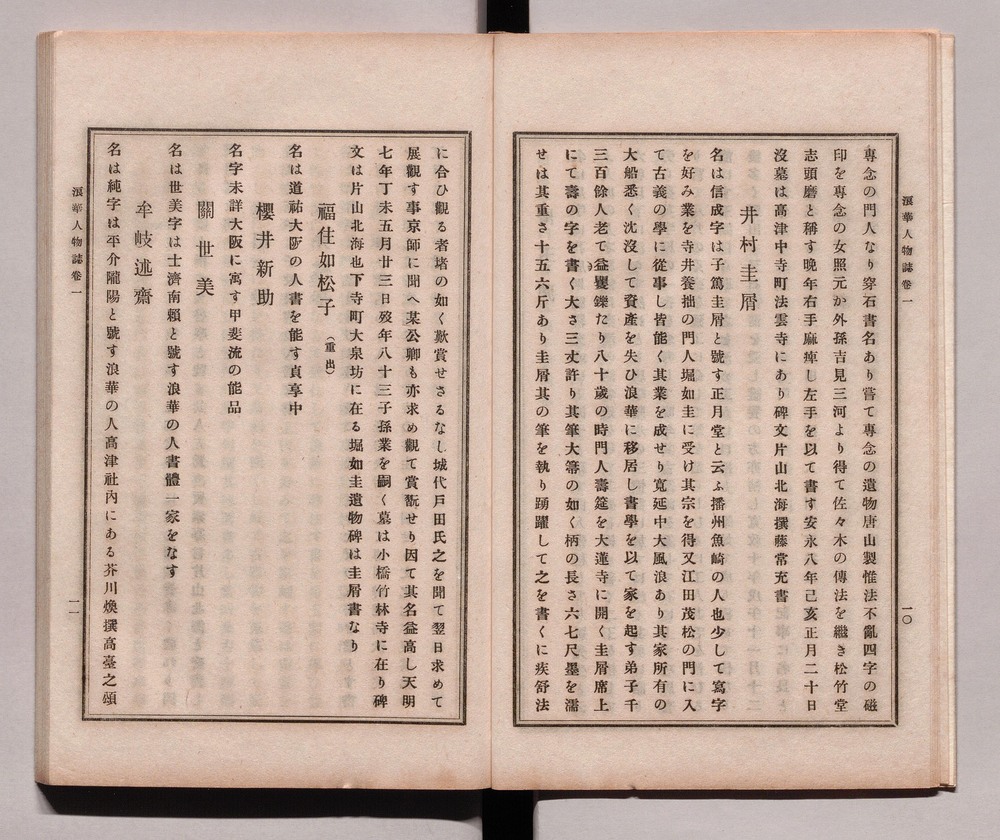 浪華人物誌卷一
一〇
專念の門人なり穿石書名あり嘗て專念の遺物唐山製惟法不亂四字の磁
印を專念の女照元か外孫吉見三河より得て佐々木の傳法を繼き松竹堂
志頭磨と稱す晚年右手麻痺し左手を以て書す安永八年己亥正月二十日
沒墓は高津中寺町法雲寺にあり碑文片山北海撰藤常充書
井村圭屑
名は信成字は子篤圭屑と號す正月堂と云ふ播州魚崎の人也少して寫字
を好み業を寺井養拙の門人堀如圭に受け其宗を得又江田茂松の門に入
て古義の學に從事し皆能く其業を成せり寬延中大風浪あり其家所有の
大船悉く沈沒して資產を失ひ浪華に移居し書學を以て家を起す弟子千
三百餘人老て益矍鑠たり八十歲の時門人壽筵を大蓮寺に開く圭屑席上
にて壽の字を書く大さ三丈許り其筆大箒の如く柄の長さ六七尺墨を濡
せは其重さ十五六斤あり圭屑其の筆を執り踴躍して之を書くに疾舒法
に合ひ觀る者堵の如く歎賞せさるなし城代戶田氏之を聞て翌日求めて
展觀す事京師に聞へ某公卿も亦求め觀て賞翫せり因て其名益高し天明
七年丁未五月廿三日歿年八十三子孫業を嗣く墓は小橋竹林寺に在り碑
文は片山北海也下寺町大泉坊に在る堀如圭遺物碑は圭屑書なり
福住如松子（重出）
名は道祐大阪の人書を能す貞享中
櫻井新助
名字未詳大阪に寓す甲斐流の能品
關世美
名は世美字は士濟南瀨と號す浪華の人書體一家をなす
牟岐述齋
名は純字は平介隴陽と號す浪華の人高津社內にある芥川煥撰高臺之頌
浪華人物誌卷一
一一